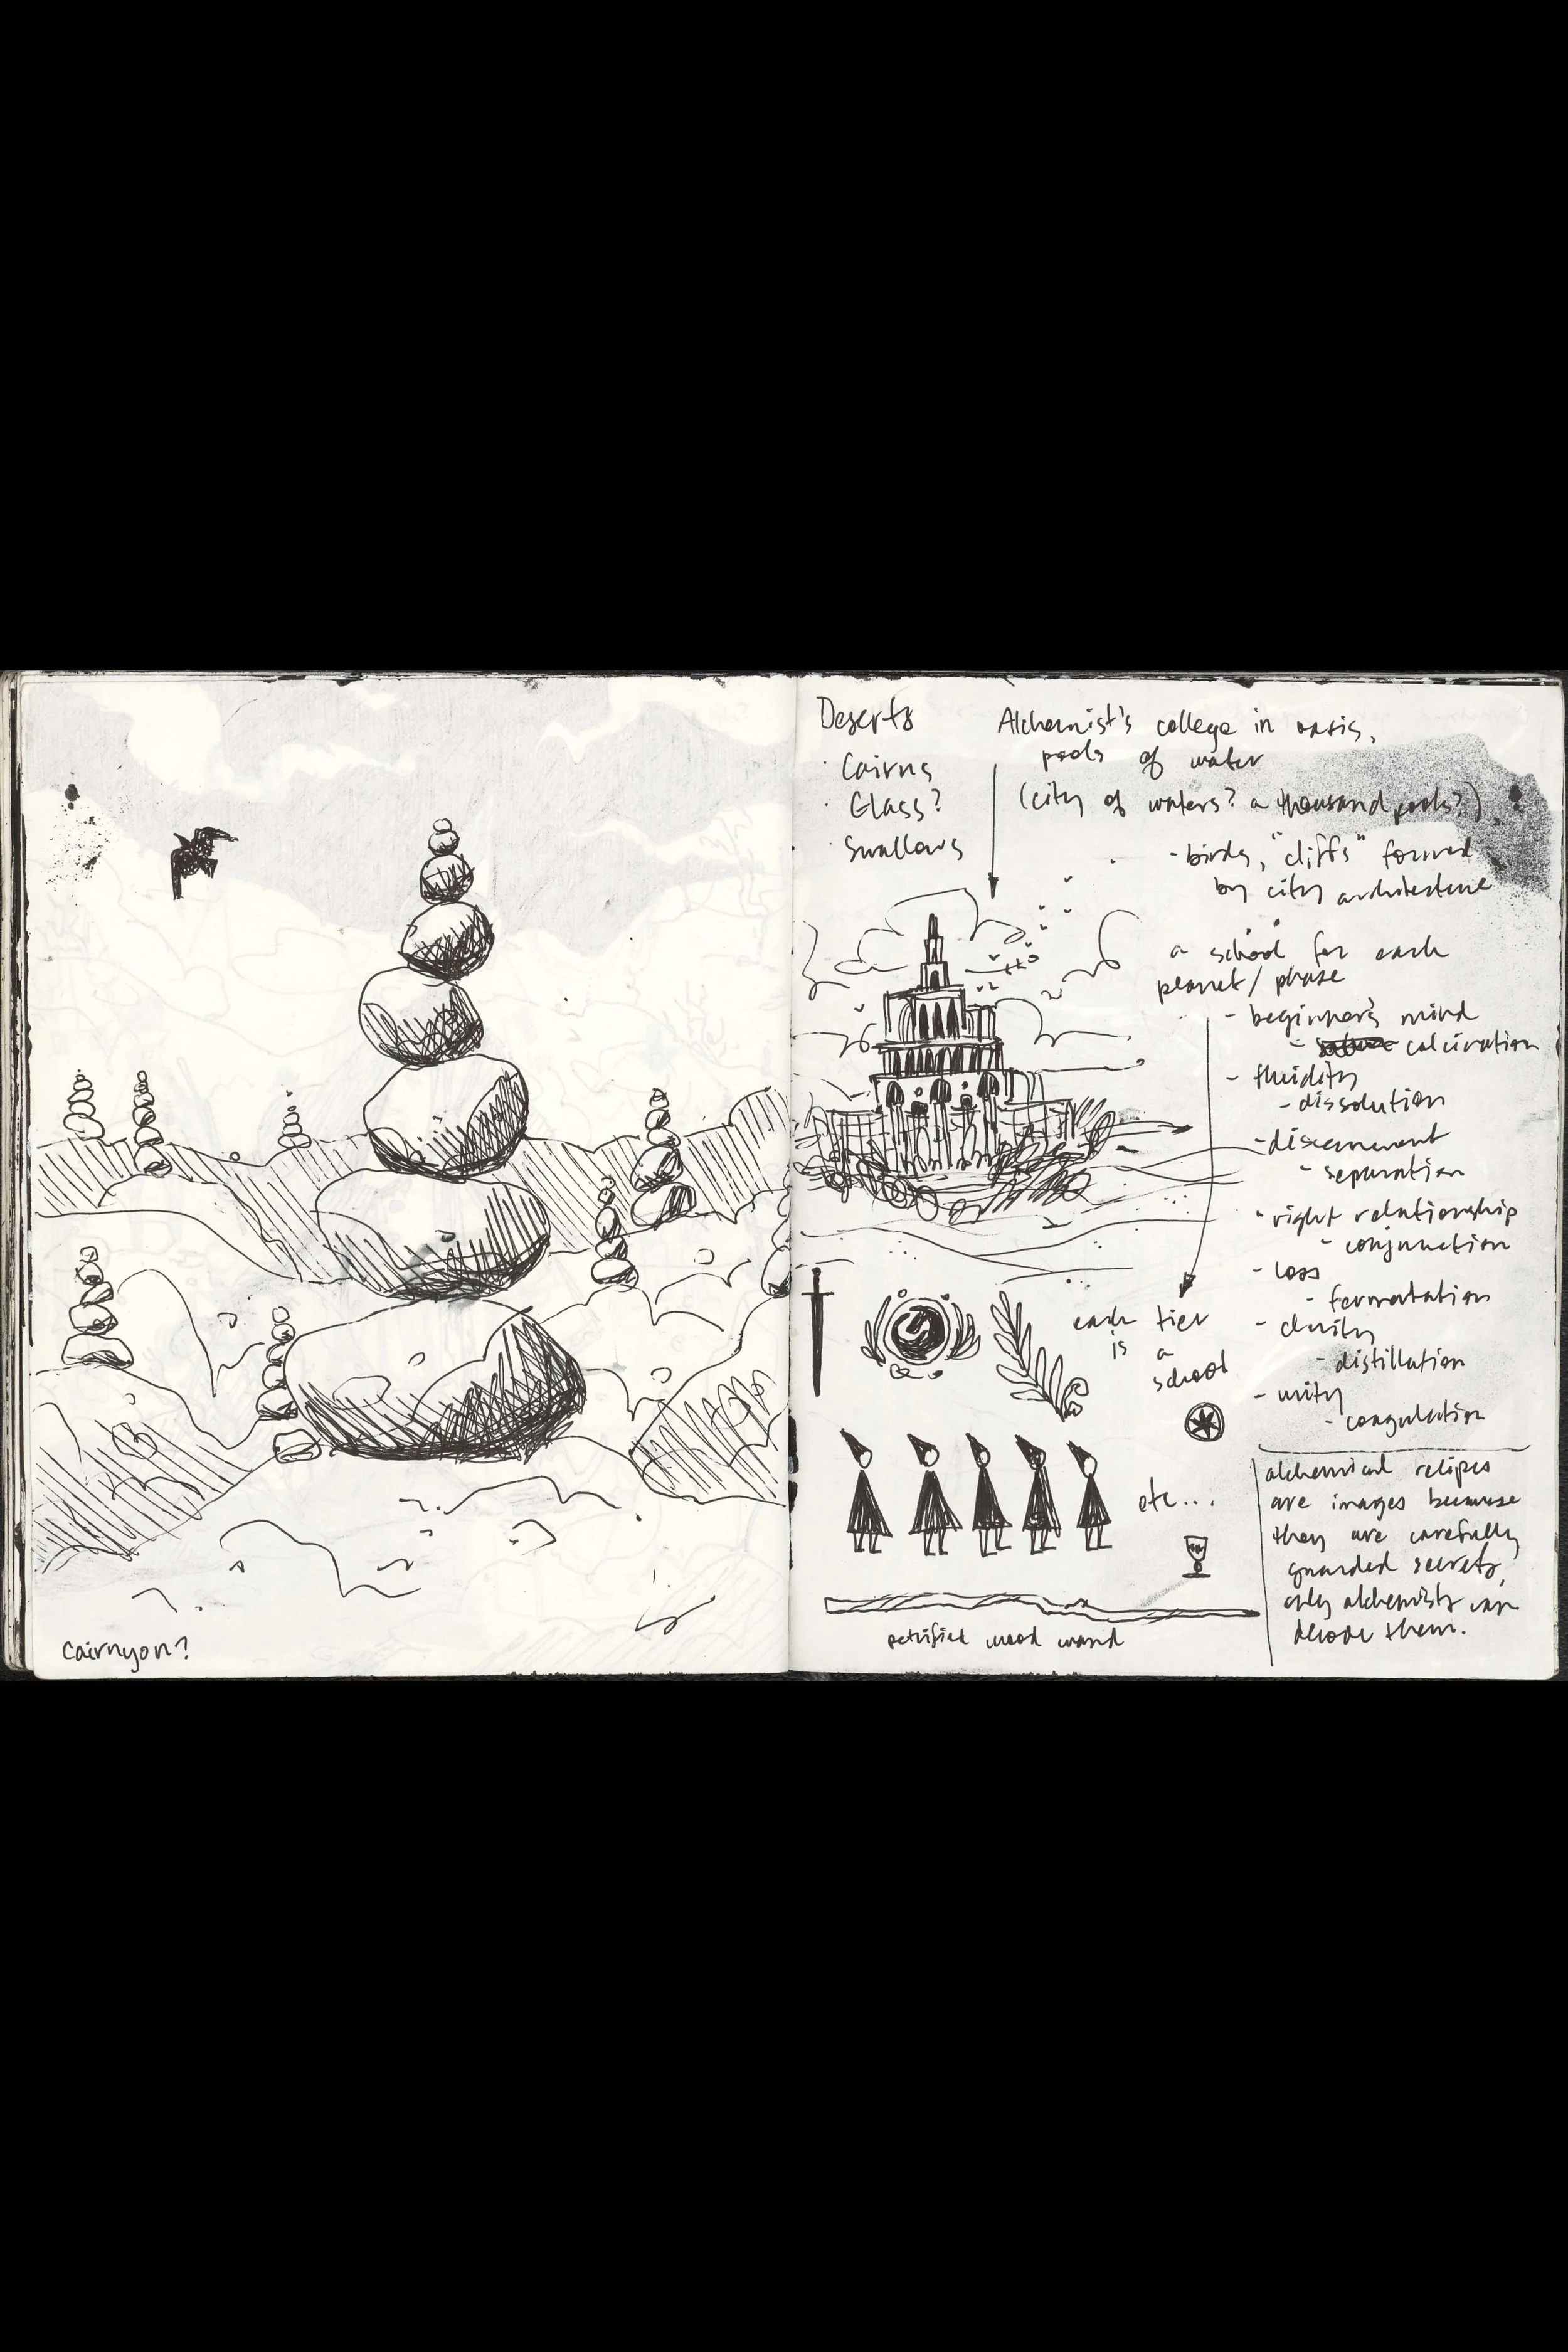 cairnyon?
Deserts
· Cairns
· Glass?
· Swallows
Alchemist's college in oasis,
pools of water
(city of waters? a thousand pools?)
- birds, "cliffs" formed
by city architecture
a school for each
planet / phase
- beginner's mind
- calcination
- fluidity
- dissolution
- discernment
- separation
- right relationship
- conjunction
- loss
- fermentation
- clarity
- distillation
- unity
- coagulation
each tier
is a
school
etc...
petrified wood wand
alchemical recipes
are images because
they are carefully
guarded secrets,
only alchemists can
decode them.